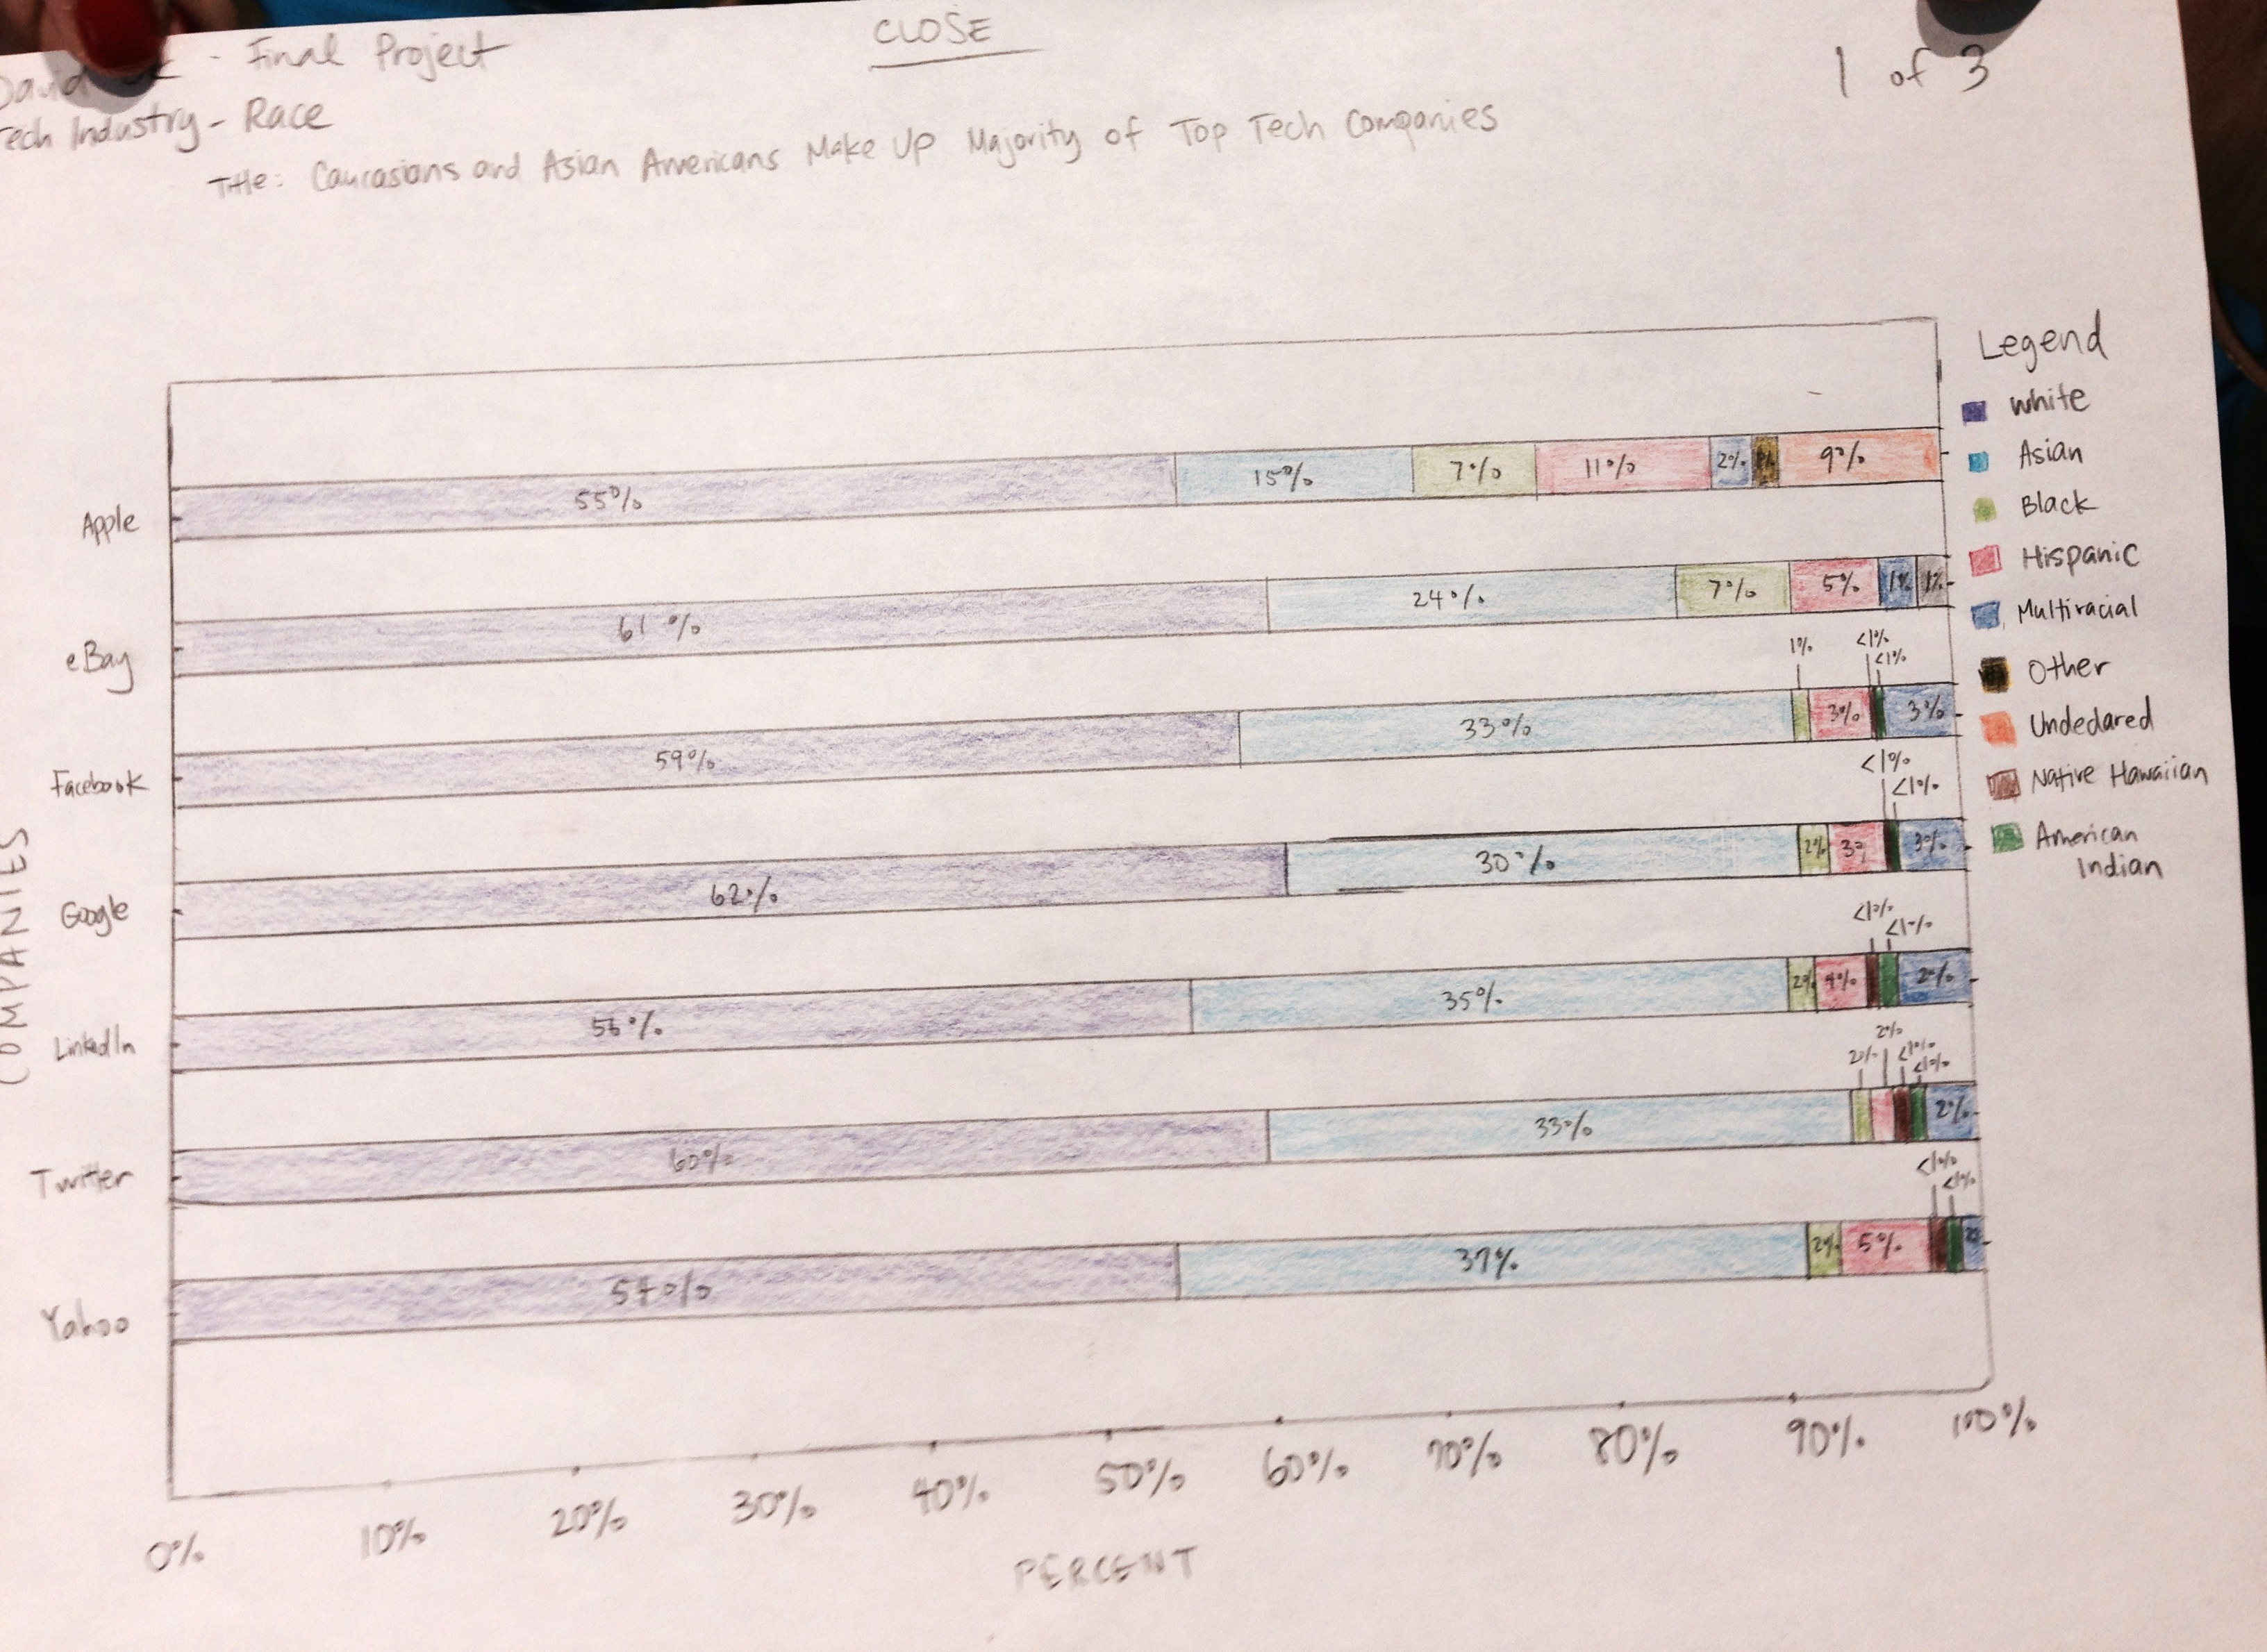 CLOSE
1 of 3
David - Final Project
Tech Industry - Race
Title: Caucasians and Asian Americans Make Up Majority of Top Tech Companies
Legend
White
Asian
Black
Hispanic
Multiracial
Other
Undeclared
Native Hawaiian
American
Indian
COMPANIES
Apple
55% 15% 7% 11% 2% 9%
eBay
61% 24% 7% 5% 1% 1%
1% <1%
<1%
Facebook
59% 33% 3% 3%
<1%
<1%
Google
62% 30% 2% 3% 3%
<1%
<1%
LinkedIn
56% 35% 2% 4% 2%
2%
2% <1%
<1%
Twitter
60% 33% 2%
<1%
<1%
Yahoo
54% 37% 2% 5%
0% 10% 20% 30% 40% 50% 60% 70% 80% 90% 100%
PERCENT